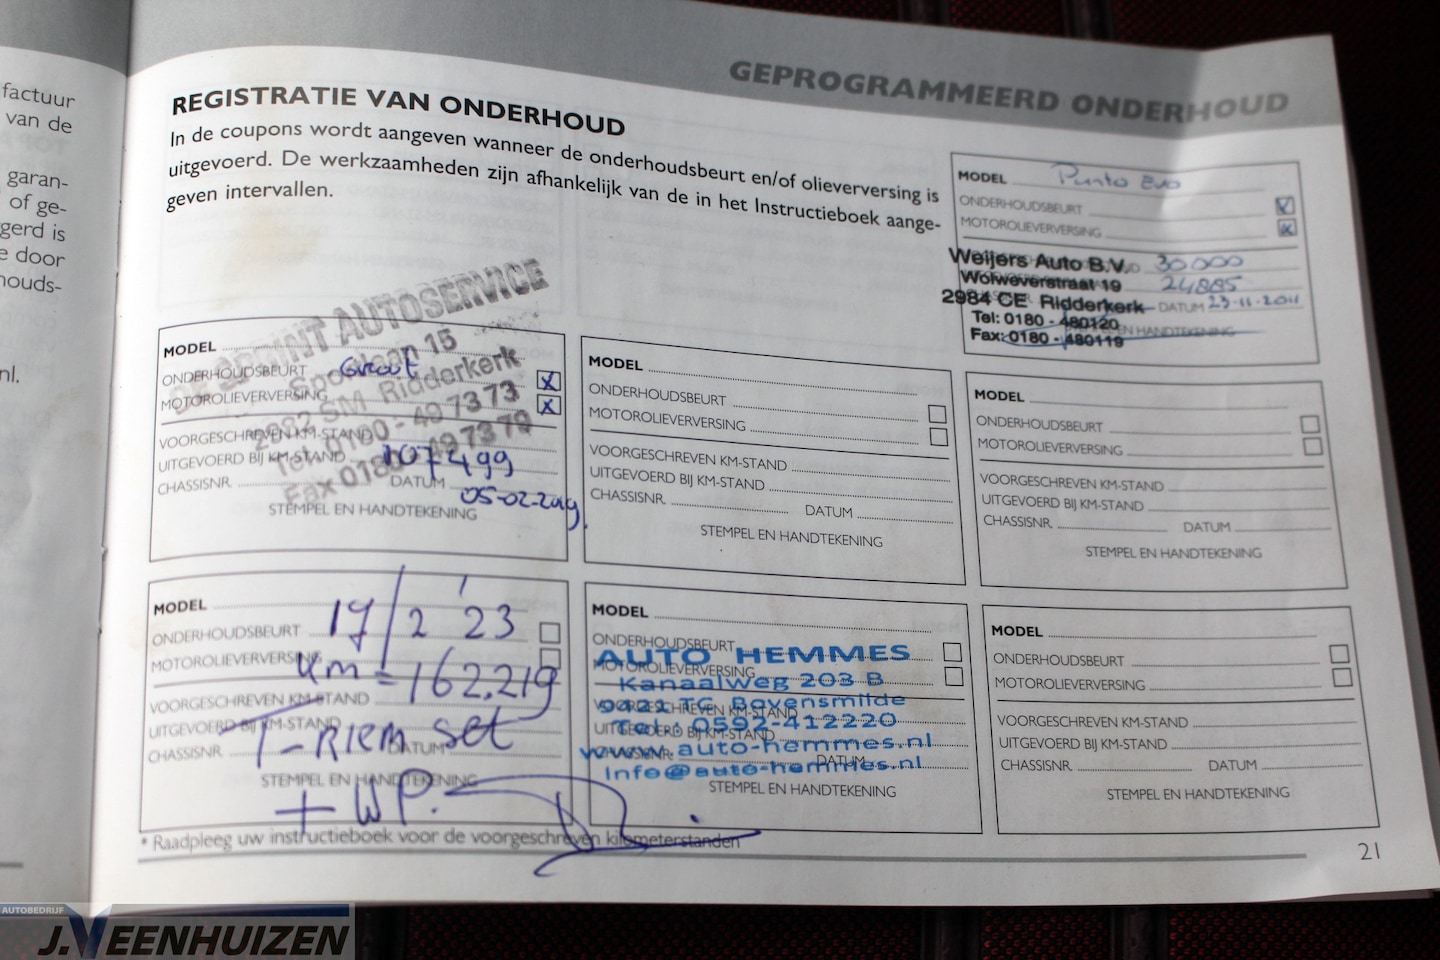 factuur
van de
garan-
of ge-
gerd is
e door
houds-
nl.
GEPROGRAMMEERD ONDERHOUD
REGISTRATIE VAN ONDERHOUD
In de coupons wordt aangeven wanneer de onderhoudsbeurt en/of olieverversing is
uitgevoerd. De werkzaamheden zijn afhankelijk van de in het Instructieboek aange-
geven intervallen.
MODEL Punto Evo
ONDERHOUDSBEURT
MOTOROLIEVERVERSING
Weijers Auto B.V. 30000
Wolweverstraat 19 24885
2984 CE Ridderkerk DATUM 23-11-2011
Tel: 0180 - 480120
Fax: 0180 - 480119
SPRINT AUTOSERVICE
15
Ridderkerk
49 73 73
Fax 0180 49 73 79
MODEL
ONDERHOUDSBEURT Groot
MOTOROLIEVERVERSING
VOORGESCHREVEN KM-STAND
UITGEVOERD BIJ KM-STAND 107499
CHASSISNR. DATUM 05-02-2019
STEMPEL EN HANDTEKENING
MODEL
ONDERHOUDSBEURT
MOTOROLIEVERVERSING
VOORGESCHREVEN KM-STAND
UITGEVOERD BIJ KM-STAND
CHASSISNR. DATUM
STEMPEL EN HANDTEKENING
MODEL
ONDERHOUDSBEURT
MOTOROLIEVERVERSING
VOORGESCHREVEN KM-STAND
UITGEVOERD BIJ KM-STAND
CHASSISNR. DATUM
STEMPEL EN HANDTEKENING
MODEL
ONDERHOUDSBEURT
MOTOROLIEVERVERSING
VOORGESCHREVEN KM-STAND
UITGEVOERD BIJ KM-STAND
CHASSISNR. DATUM
STEMPEL EN HANDTEKENING
17/2 '23
km = 162.219
T-Riem set
+ WP.
MODEL
ONDERHOUDSBEURT
MOTOROLIEVERVERSING
VOORGESCHREVEN KM-STAND
UITGEVOERD BIJ KM-STAND
DATUM
STEMPEL EN HANDTEKENING
AUTO HEMMES
Kanaalweg 203 B
9421 TC Bovensmilde
Tel.: 0592-412220
www.auto-hemmes.nl
info@auto-hemmes.nl
MODEL
ONDERHOUDSBEURT
MOTOROLIEVERVERSING
VOORGESCHREVEN KM-STAND
UITGEVOERD BIJ KM-STAND
CHASSISNR. DATUM
STEMPEL EN HANDTEKENING
* Raadpleeg uw instructieboek voor de voorgeschreven kilometerstanden
21
AUTOBEDRIJF
J.VEENHUIZEN